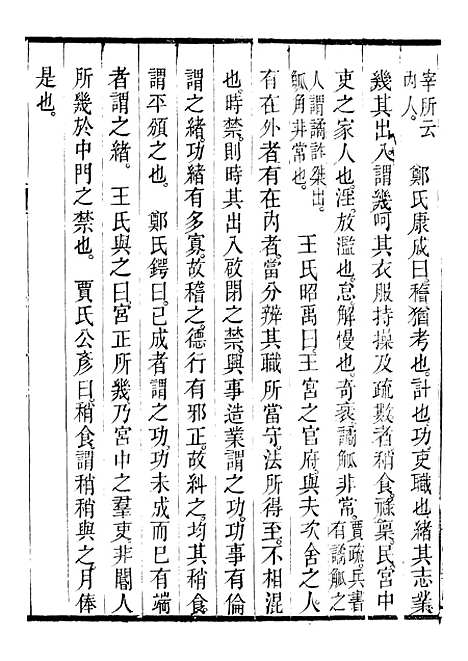 宰所云
內人。
鄭氏康成曰。稽猶考也。計也。功。吏職也。緒。其志業。
幾其出入。謂幾呵其衣服持操及疏數者。稍食。祿稟。民。宮中
吏之家人也。淫。放濫也。怠。解慢也。奇衺。譎觚非常。
賈疏。兵書
有譎觚之
人謂譎詐桀出。
觚角非常也。
王氏昭禹曰。王宮之官府。與夫次舍之人。
有在外者。有在內者。當分辨其職所當守。法所得至。不相混
也。時禁。則時其出入啟閉之禁。興事造業謂之功。功事有倫
謂之緒。功緒有多寡。故稽之。德行有邪正。故糾之。均其稍食
謂平頒之也。 鄭氏鍔曰。已成者謂之功。功未成而已有端
者謂之緒。 王氏與之曰。宮正所幾乃宮中之羣吏。非閽人
所幾於中門之禁也。 賈氏公彥曰。稍食。謂稍稍與之。月俸
是也。